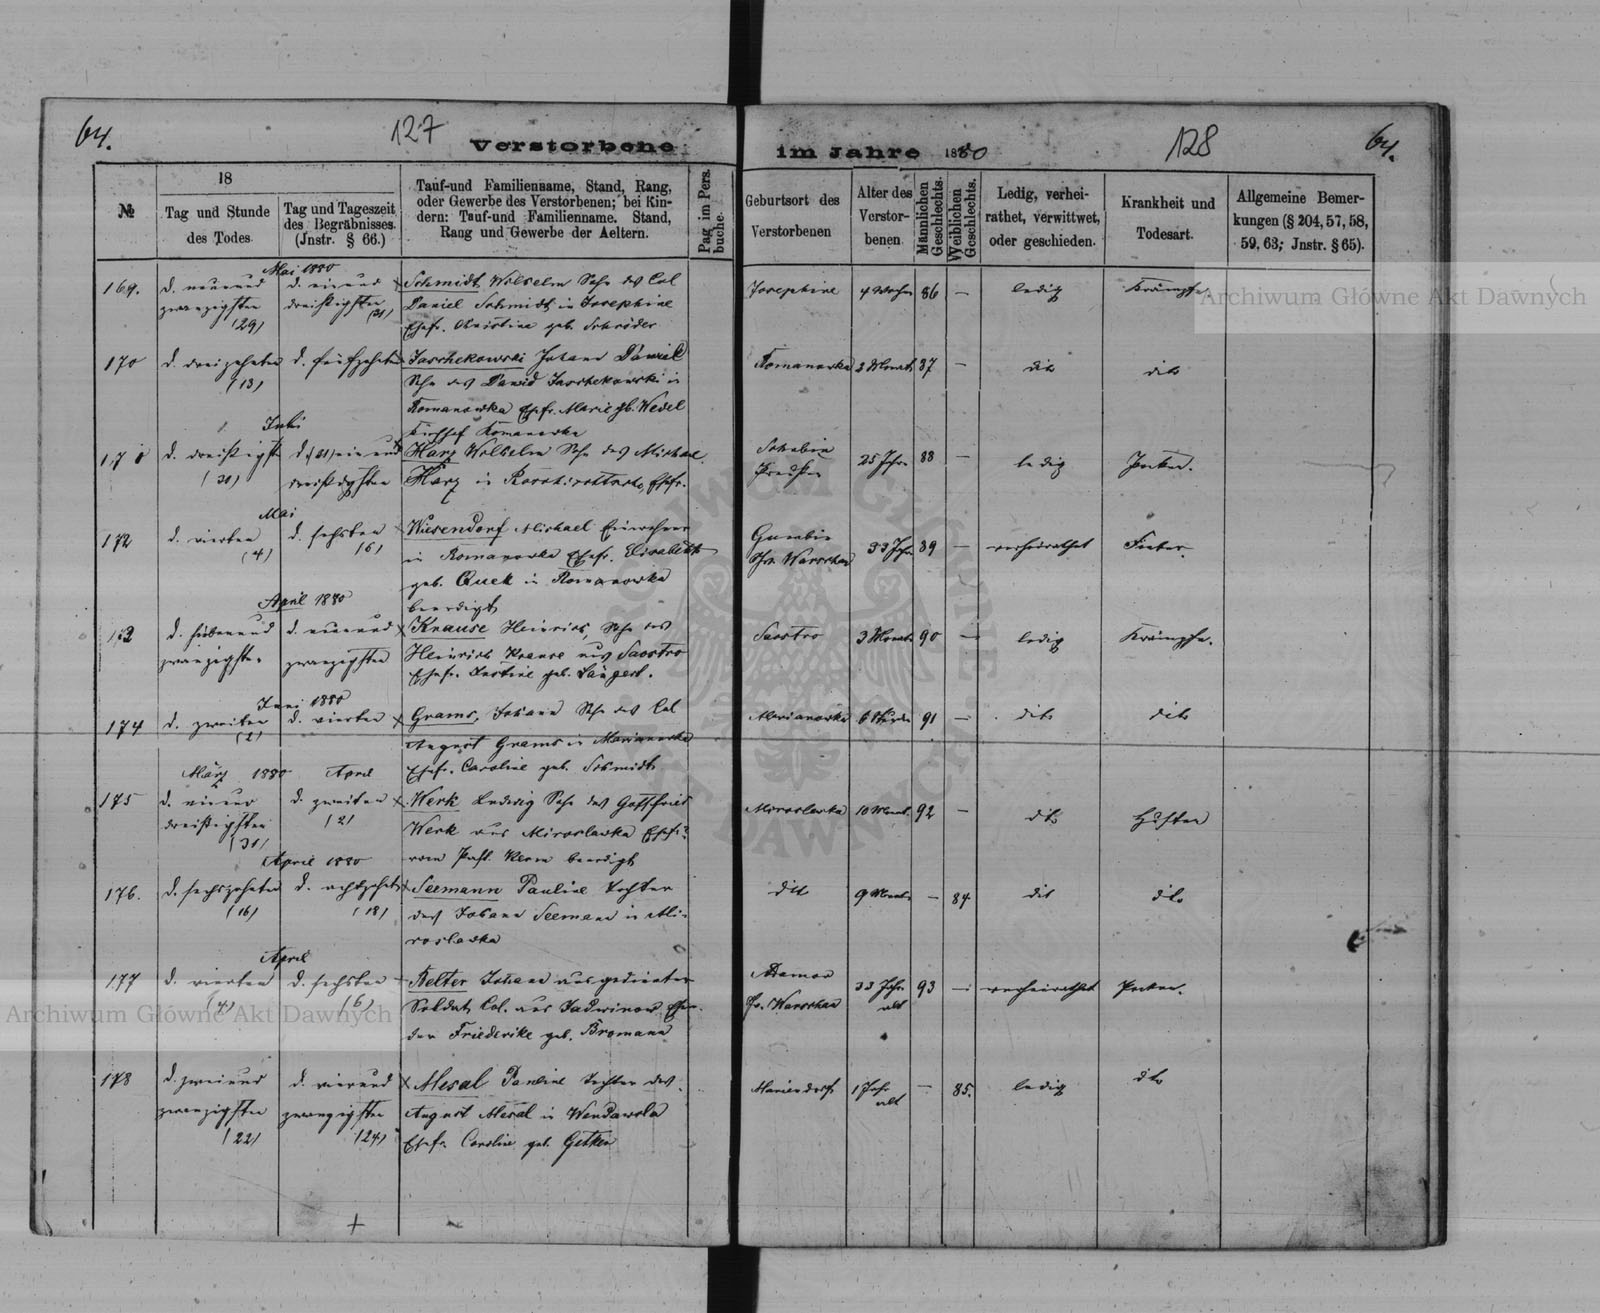 64.
127
Verstorbene
im Jahre 1880
128
64.
№
18
Tag und Stunde
des Todes.
Tag und Tageszeit
des Begräbnisses.
(Jnstr. § 66.)
Tauf-und Familienname, Stand, Rang,
oder Gewerbe des Verstorbenen; bei Kin-
dern: Tauf-und Familienname. Stand,
Rang und Gewerbe der Aeltern.
Pag im Pers.
buche.
Geburtsort des
Verstorbenen
Alter des
Verstor-
benen.
Männlichen
Geschlechts.
Weiblichen
Geschlechts.
Ledig, verhei-
rathet, verwittwet,
oder geschieden.
Krankheit und
Todesart.
Allgemeine Bemer-
kungen (§ 204, 57, 58,
59, 63; Jnstr. § 65).
Mai 1880
169. d. neunund d. einund Schmidt, Wilhelm Sohn des Col Josephine 4 Wochen 86 — ledig Krämpfe
zwanzigsten dreißigsten (31) Daniel Schmidt in Josephine
(29) Ehefr. Christine geb. Schröder
170 d. dreizehnten d. fünfzehnten Jaschekowski Johann Daniel Romanowka 2 Monat 87 — dito dito
(13) Sohn des David Jaschekowski in
Romanowka Ehefr. Marie gb. Wedel
Kirchhof Romanowka
d. dreißigst d. (31) einund Harz Wilhelm Sohn des Michael 25 Jahr 88 — ledig Pocken.
(30) dreißigsten Harz in Ehefr.
Mai
172 d. vierten d. sechsten Wiesendorf Michael Einwohner 33 Jahr 89 — verheirathet Fieber.
(4) (6) in Romanowka Ehefr. Elisabeth Gv. Warschau
geb. Quek in Romanowka
beerdigt
April 1880
d. siebenund d. neunund Krause Heinrich, Sohn des Saostro 3 Monat 90 — ledig Krämpfe.
zwanzigsten zwanzigsten Heinrich Krause aus Saostro
Ehefr. Justine geb. Längert.
Juni 1880
174 d. zweiten d. vierten Grams, Johann Sohn des Col Marianowka 6 Stunden 91 — dito dito
(2) August Grams in Marianowka
Ehefr. Caroline geb. Schmidt
März 1880 April
175 d. einund d. zweiten Werk Ludwig Sohn des Gottfried Miroslawka 10 Monat 92 — dto Husten
dreißigsten (2) Werk aus Miroslawka Ehefr?
(31) vom Past. Kern beerdigt
April 1880
176. d. sechszehnten d. achtzehnt Seemann Pauline Tochter dito 9 Monat — 84 dit dito
(16) (18) des Johann Seemann in Mi-
roslawka
April
177 d. vierten d. sechsten Belter Johann ausgedienter 33 Jahr 93 — verheirathet Pocken.
(4) (6) Soldat Col. aus Jadwinow Ehe. Gv. Warschau alt
der Friederike geb. Bromann
178 d. zweiund d. vierund Mesal Pauline Tochter des Mariendorf 1 Jahr — 85. ledig dto
zwanzigsten zwanzigsten August Mesal in Wendawola alt
(22) (24) Ehefr. Caroline geb. Getken
Archiwum Główne Akt Dawnych
Archiwum Główne Akt Dawnych
ARCHIWUM GŁÓWNE AKT DAWNYCH